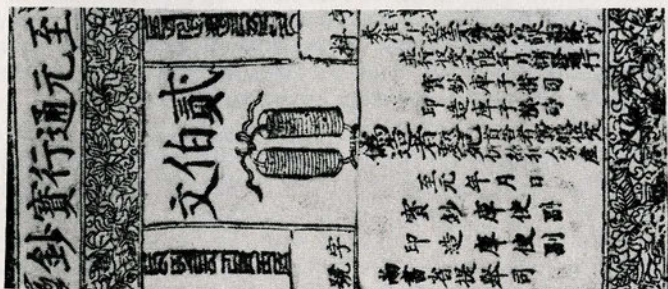 至元通行寶鈔
貳伯文
字料
字號
並行收受不限年月諸路通行
寶鈔庫子攢司
印造庫子攢司
偽造者處死
首告者賞銀伍定
仍給犯人家產
至元 年 月 日
寶鈔庫使副
印造庫使副
尚書省提舉司